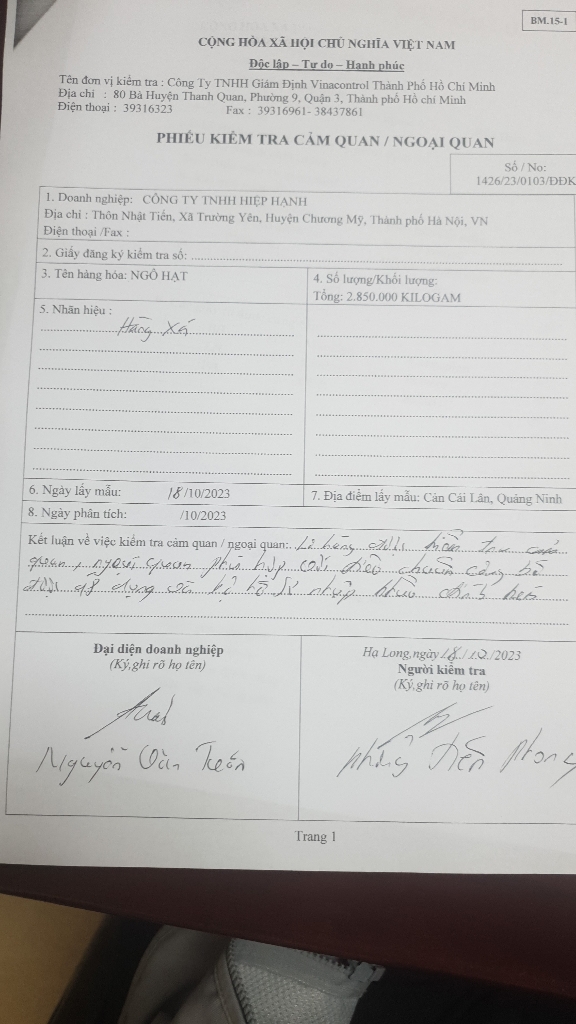 BM.15-1
CỘNG HÒA XÃ HỘI CHỦ NGHĨA VIỆT NAM
Độc lập – Tự do – Hạnh phúc
Tên đơn vị kiểm tra : Công Ty TNHH Giám Định Vinacontrol Thành Phố Hồ Chí Minh
Địa chỉ : 80 Bà Huyện Thanh Quan, Phường 9, Quận 3, Thành phố Hồ chí Minh
Điện thoại : 39316323 Fax : 39316961- 38437861
PHIẾU KIỂM TRA CẢM QUAN / NGOẠI QUAN
Số / No:
1426/23/0103/ĐĐK
1. Doanh nghiệp: CÔNG TY TNHH HIỆP HẠNH
Địa chỉ : Thôn Nhật Tiến, Xã Trường Yên, Huyện Chương Mỹ, Thành phố Hà Nội, VN
Điện thoại /Fax :
2. Giấy đăng ký kiểm tra số:
3. Tên hàng hóa: NGÔ HẠT
4. Số lượng/Khối lượng:
Tổng: 2.850.000 KILOGAM
5. Nhãn hiệu :
Hàng Xá
6. Ngày lấy mẫu: 18/10/2023
7. Địa điểm lấy mẫu: Cản Cái Lân, Quảng Ninh
8. Ngày phân tích: /10/2023
Kết luận về việc kiểm tra cảm quan / ngoại quan: Lô hàng kiểm tra cảm
quan, ngoại quan phù hợp với tiêu chuẩn công bố
áp dụng và hồ sơ nhập khẩu
Đại diện doanh nghiệp
(Ký,ghi rõ họ tên)
Nguyễn Văn
Hạ Long,ngày 18/10/2023
Người kiểm tra
(Ký,ghi rõ họ tên)
Phùng Tiến Phong
Trang 1